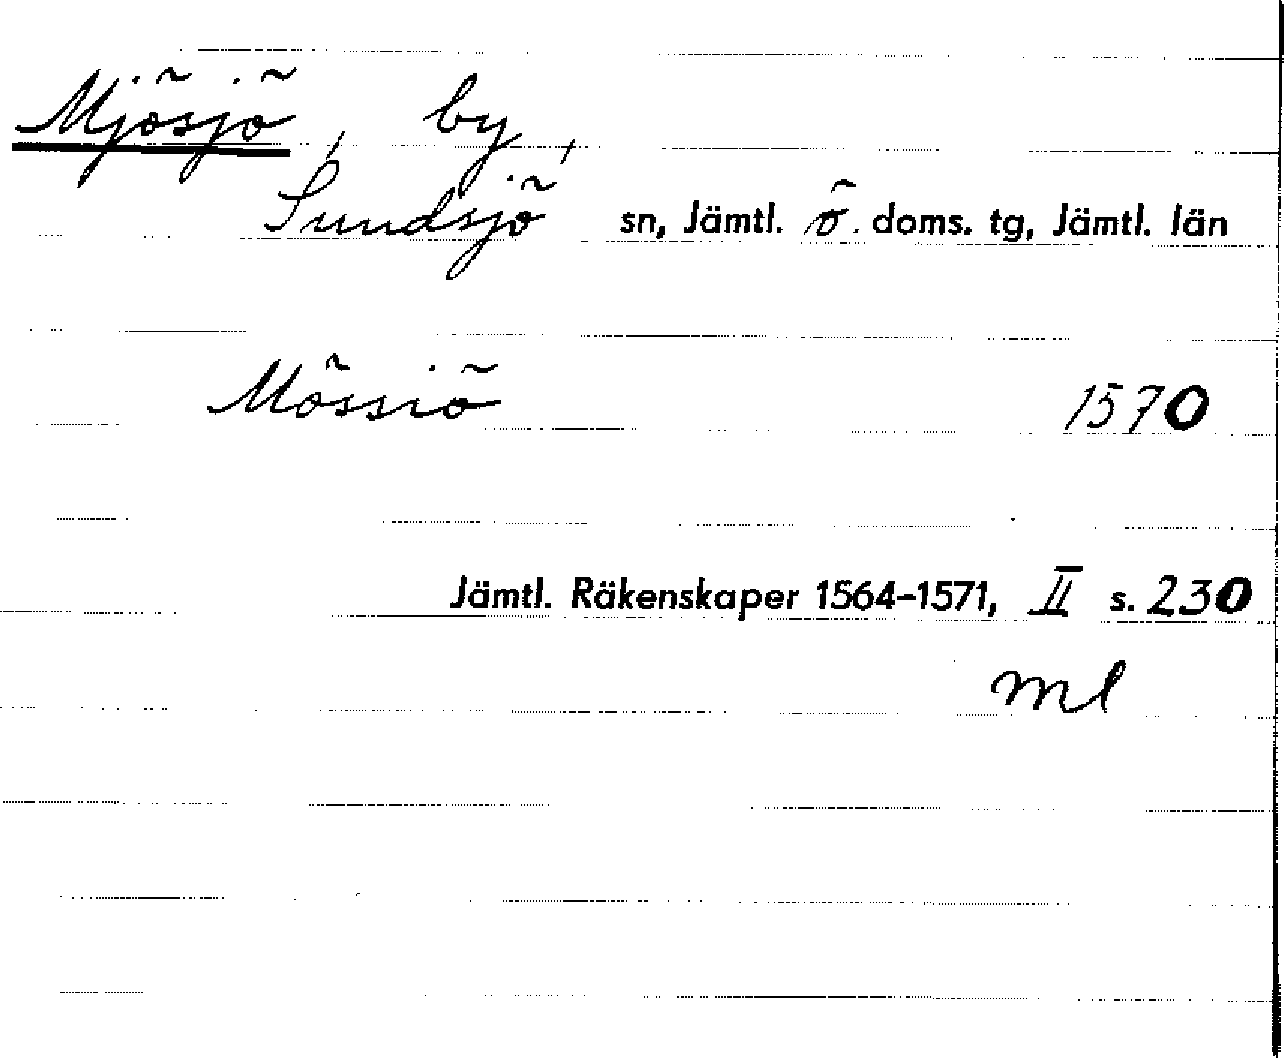 Mjösjö, by,
Sundsjö sn, Jämtl. ö. doms. tg, Jämtl. län
Mössiö 1570
Jämtl. Räkenskaper 1564-1571, II s. 230
ml